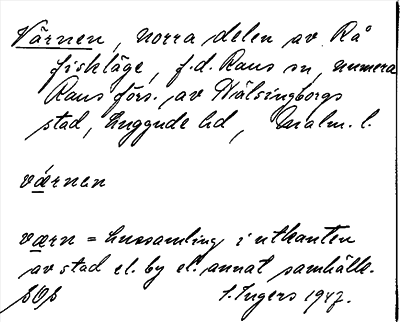 Värnen, norra delen av Rå
fiskläge, f.d. Raus sn, numera
Raus förs., av Hälsingborgs
stad, Luggude hd, Malm. l.
värnen
værn = hussamling i utkanten
av stad el. by el. annat samhälle.
SOS I. Ingers 1947.